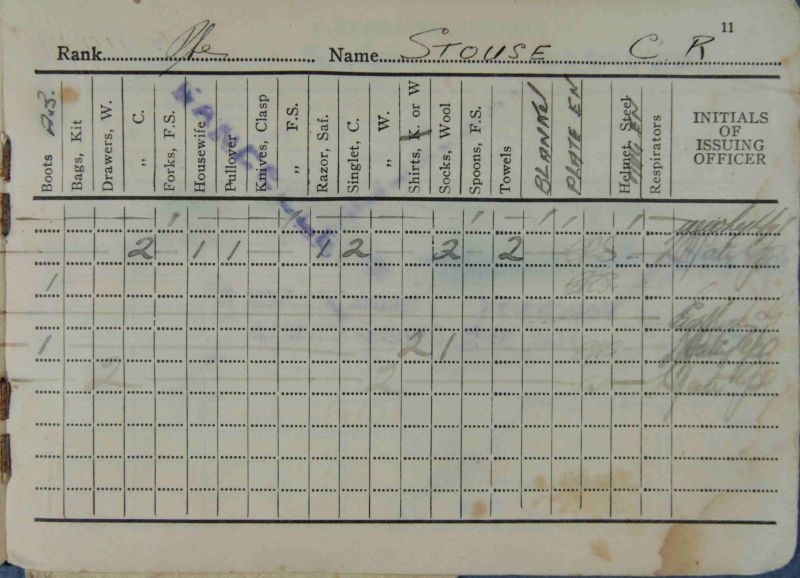 11
Rank Pte Name STOUSE C R
Boots
Bags, Kit
Drawers, W.
„ C.
Forks, F.S.
Housewife
Pullover
Knives, Clasp
„ F.S.
Razor, Saf.
Singlet, C.
„ W.
Shirts, K. or W
Socks, Wool
Spoons, F.S.
Towels
BLANKET
PLATE EN
Helmet, Steel
MUG EN
Respirators
INITIALS
OF
ISSUING
OFFICER
1 1 1 1 1 1
2 1 1 1 2 2 2
1
1 2 1
2 2